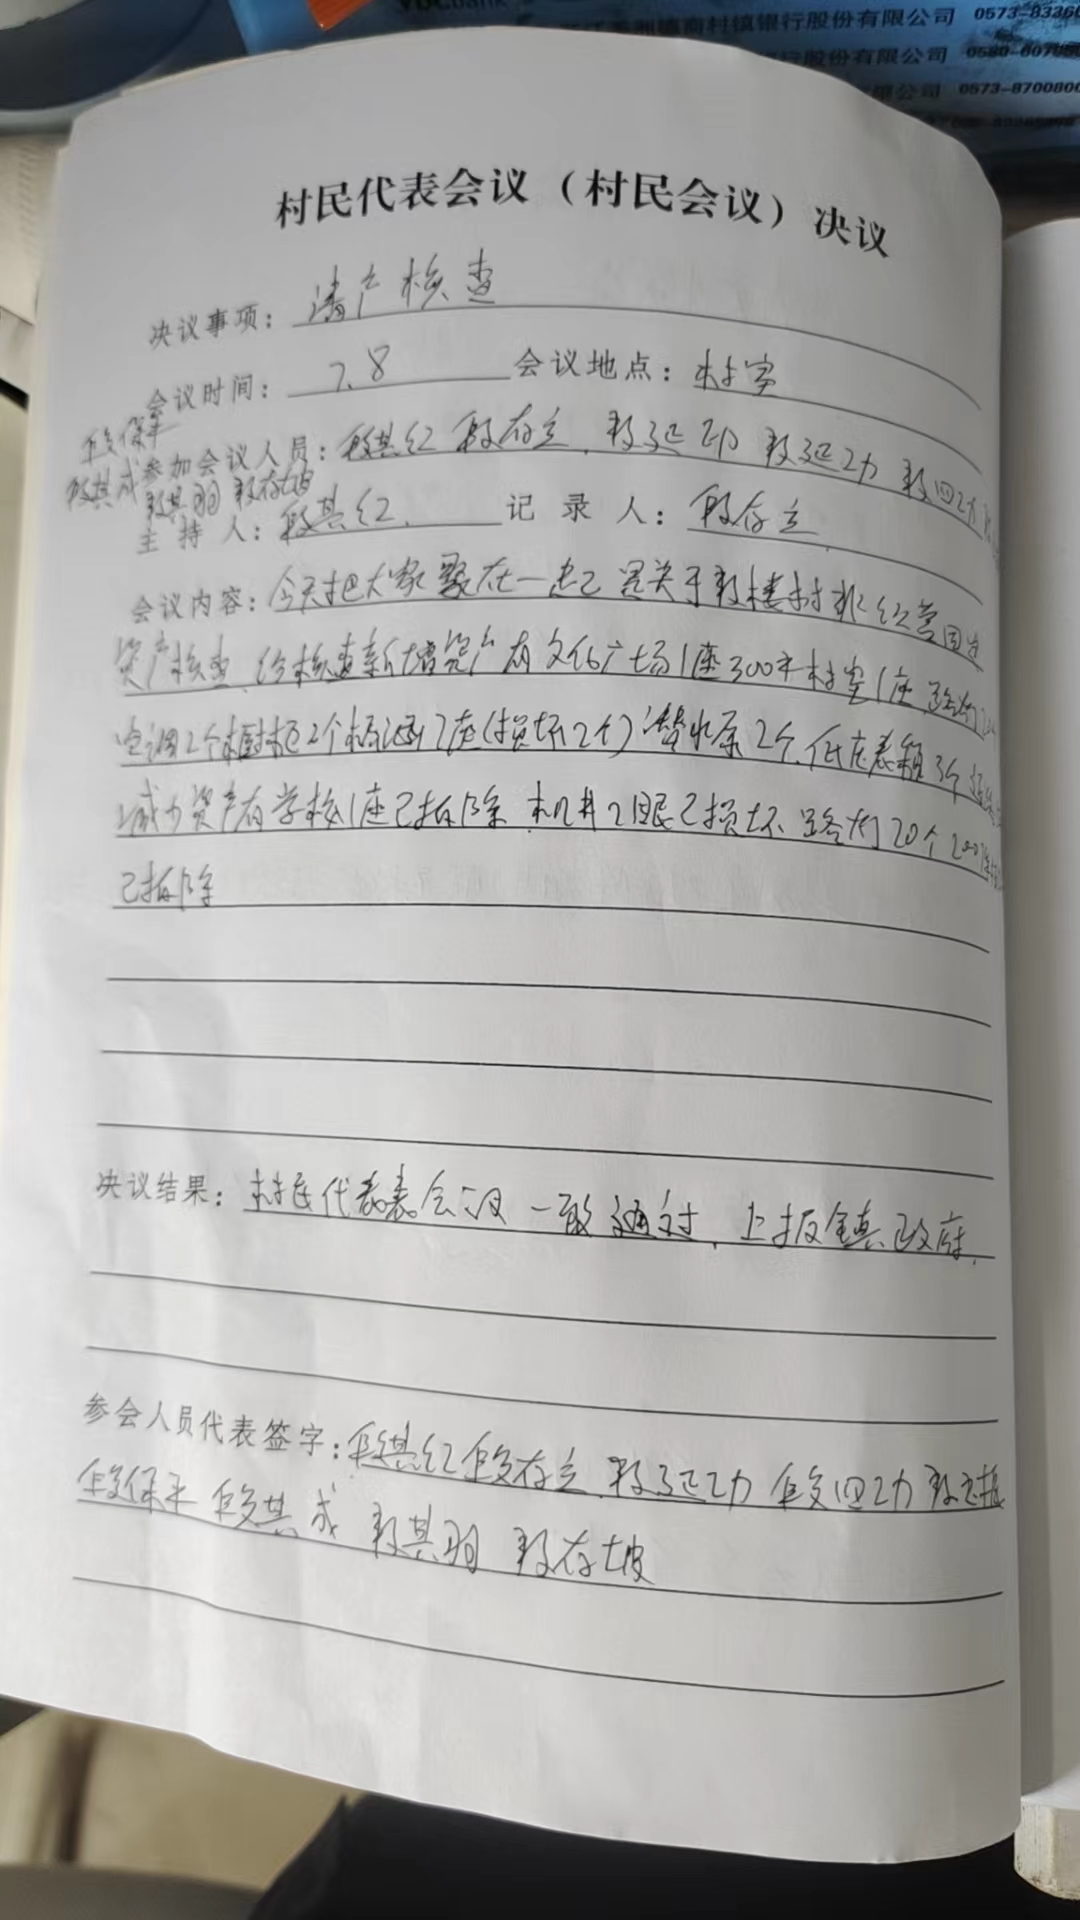 YDCbank
商村镇银行股份有限公司 0573-8336
股份有限公司 0580-60
公司 0573-8700800
村民代表会议（村民会议）决议
决议事项：清产核查
会议时间：7.8 会议地点：村室
段保平
参加会议人员：段其红 段存立 段延功 段四功
段其成 段其羽 段存坡
主持人：段其红 记录人：段存立
会议内容：今天把大家聚在一起 是关于段楼村 经营固定
资产核查 经核查新增资产有文化广场1座300平 村室1座 路灯
空调2个 橱柜2个 桥涵7座(损坏2个) 潜水泵2个 低压表箱3个
减少资产有学校1座已拆除 机井2眼已损坏 路灯20个
已拆除
决议结果：村民代表会议一致通过，上报镇政府，
参会人员代表签字：段其红 段存立 段延功 段四功
段保平 段其成 段其羽 段存坡